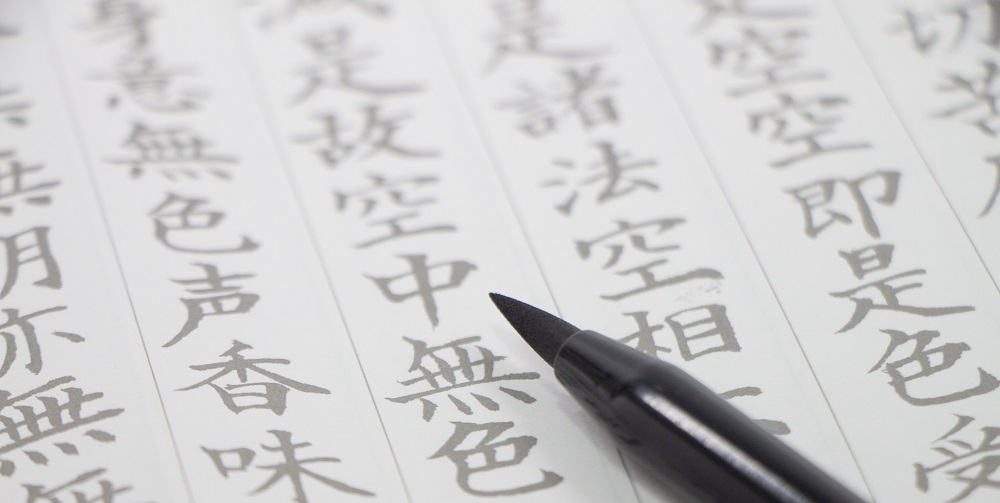 切苦
是空空即是色受
是諸法空相
減是故空中無色
身意無色声香味
無無明亦無無